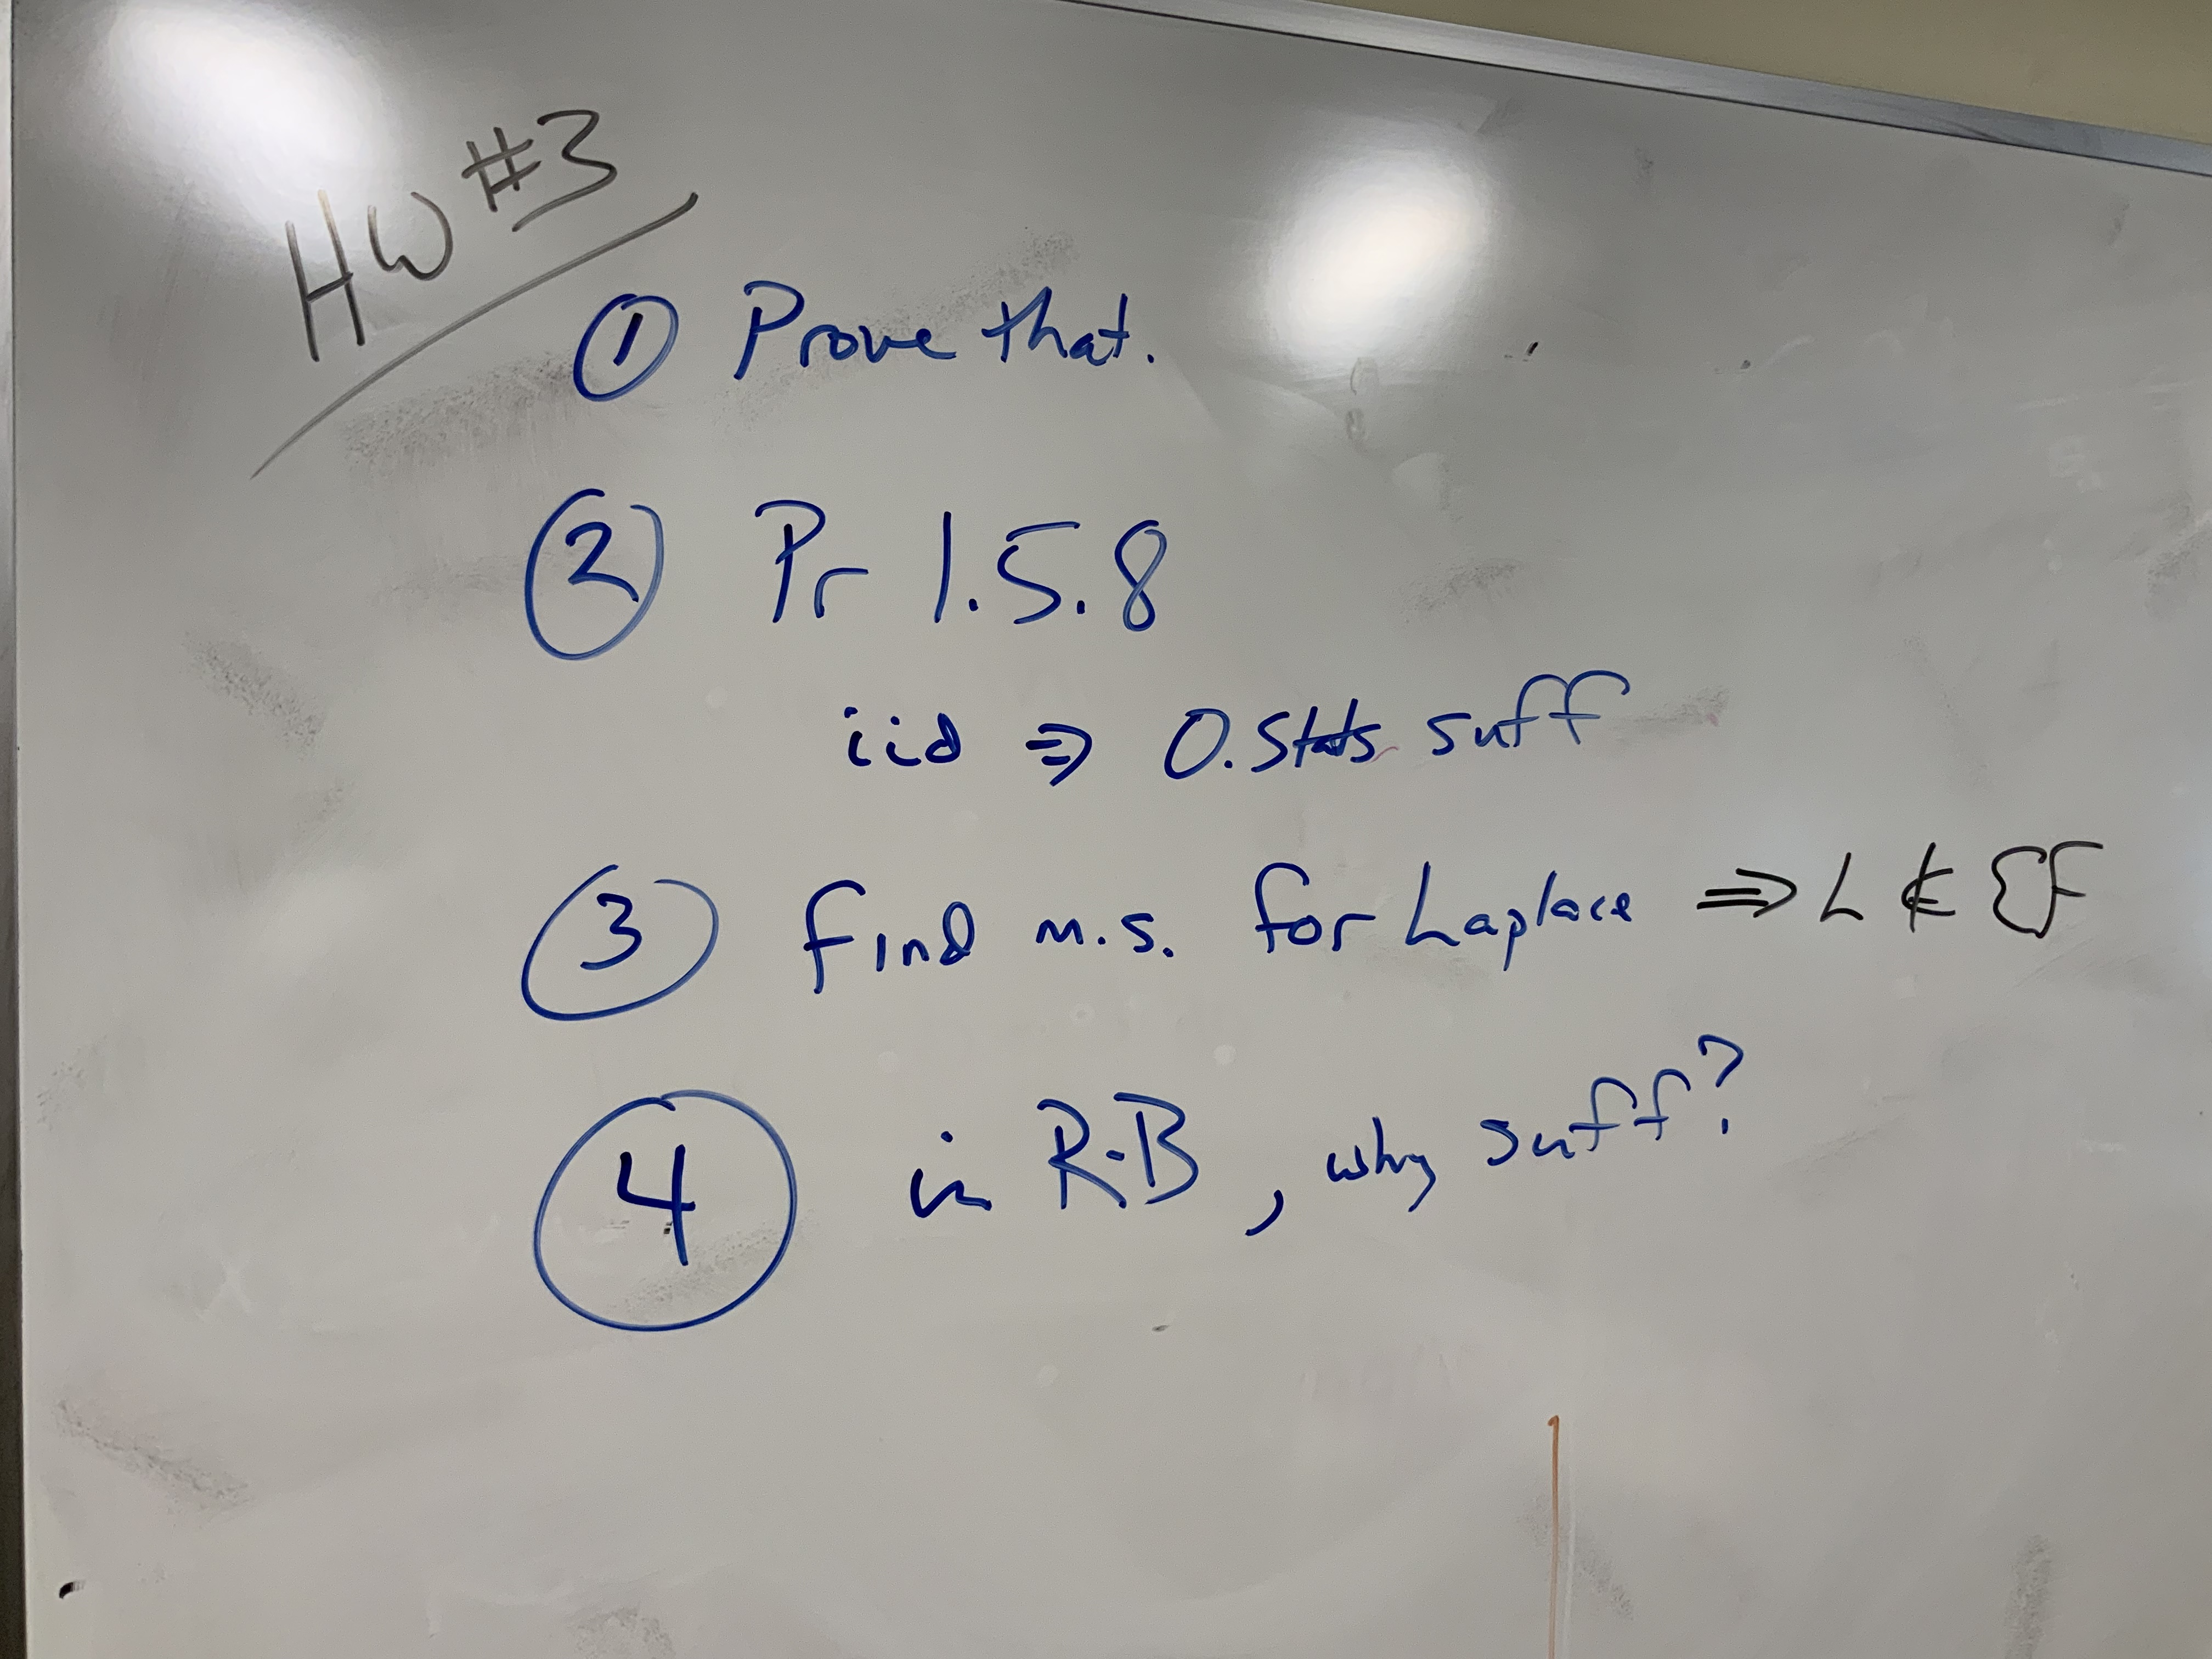 HW #3
① Prove that.
② Pr 1.5.8
iid ⇒ O.Stats suff
③ find m.s. for Laplace ⇒ L ∉ EF
④ in R-B, why suff?